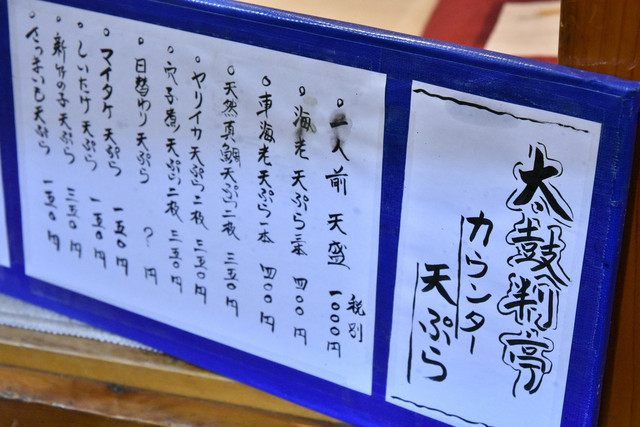 太鼓判亭
カウンター
天ぷら
税別
一人前 天盛 1000円
海老 天ぷら二本 四〇〇円
車海老 天ぷら一本 四〇〇円
天然真鯛天ぷら二枚 三五〇円
ヤリイカ 天ぷら二枚 三五〇円
穴子 天ぷら二枚 三五〇円
日替わり 天ぷら ? 円
マイタケ 天ぷら 一五〇円
しいたけ 天ぷら 一五〇円
新竹の子 天ぷら 三五〇円
さつまいも 天ぷら 一五〇円